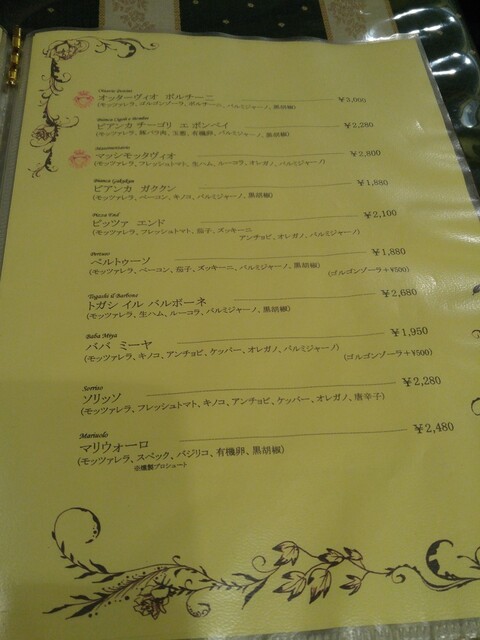 オッターヴィオ ポルチーニ ¥3,000
(モッツァレラ、ゴルゴンゾーラ、ポルチーニ、パルミジャーノ、黒胡椒)
ビアンカ チーゴリ エ ボンベイ ¥2,280
(モッツァレラ、豚バラ肉、玉葱、有機卵、パルミジャーノ、黒胡椒)
マッシモッタヴィオ ¥2,800
(モッツァレラ、フレッシュトマト、生ハム、ルーコラ、オレガノ、パルミジャーノ)
ビアンカ ガククン ¥1,880
(モッツァレラ、ベーコン、キノコ、パルミジャーノ、黒胡椒)
Pizza End
ピッツァ エンド ¥2,100
(モッツァレラ、フレッシュトマト、茄子、ズッキーニ
アンチョビ、オレガノ、パルミジャーノ)
Pertuso
ペルトゥーソ ¥1,880
(モッツァレラ、ベーコン、茄子、ズッキーニ、パルミジャーノ、黒胡椒)
(ゴルゴンゾーラ+¥500)
Togashi il Barbone
トガシ イル バルボーネ ¥2,680
(モッツァレラ、生ハム、ルーコラ、パルミジャーノ、黒胡椒)
Baba Miya
ババ ミーヤ ¥1,950
(モッツァレラ、キノコ、アンチョビ、ケッパー、オレガノ、パルミジャーノ)
(ゴルゴンゾーラ+¥500)
Sorriso
ソリッソ ¥2,280
(モッツァレラ、フレッシュトマト、キノコ、アンチョビ、ケッパー、オレガノ、唐辛子)
Mariuolo
マリウォーロ ¥2,480
(モッツァレラ、スペック、バジリコ、有機卵、黒胡椒)
※燻製プロシュート